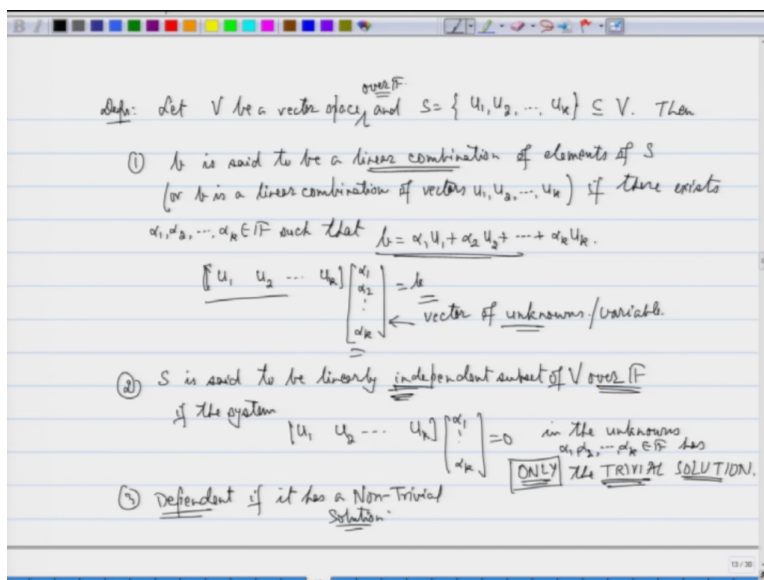 over 𝔽
Defn: Let V be a vector space, and S = { u₁, u₂, ..., uₖ } ⊆ V. Then
① b is said to be a linear combination of elements of S
(or b is a linear combination of vectors u₁, u₂, ..., uₖ) if there exists
α₁, α₂, ..., αₖ ∈ 𝔽 such that b = α₁u₁ + α₂u₂ + ... + αₖuₖ.
[u₁ u₂ ... uₖ] [α₁ α₂ ⋮ αₖ] = b
← vector of unknowns/variable.
② S is said to be linearly independent subset of V over 𝔽
if the system
[u₁ u₂ ... uₖ] [α₁ ⋮ αₖ] = 0 in the unknowns
α₁, α₂, ..., αₖ ∈ 𝔽 has
ONLY the TRIVIAL SOLUTION.
③ Dependent if it has a Non-Trivial
Solution.
13 / 30